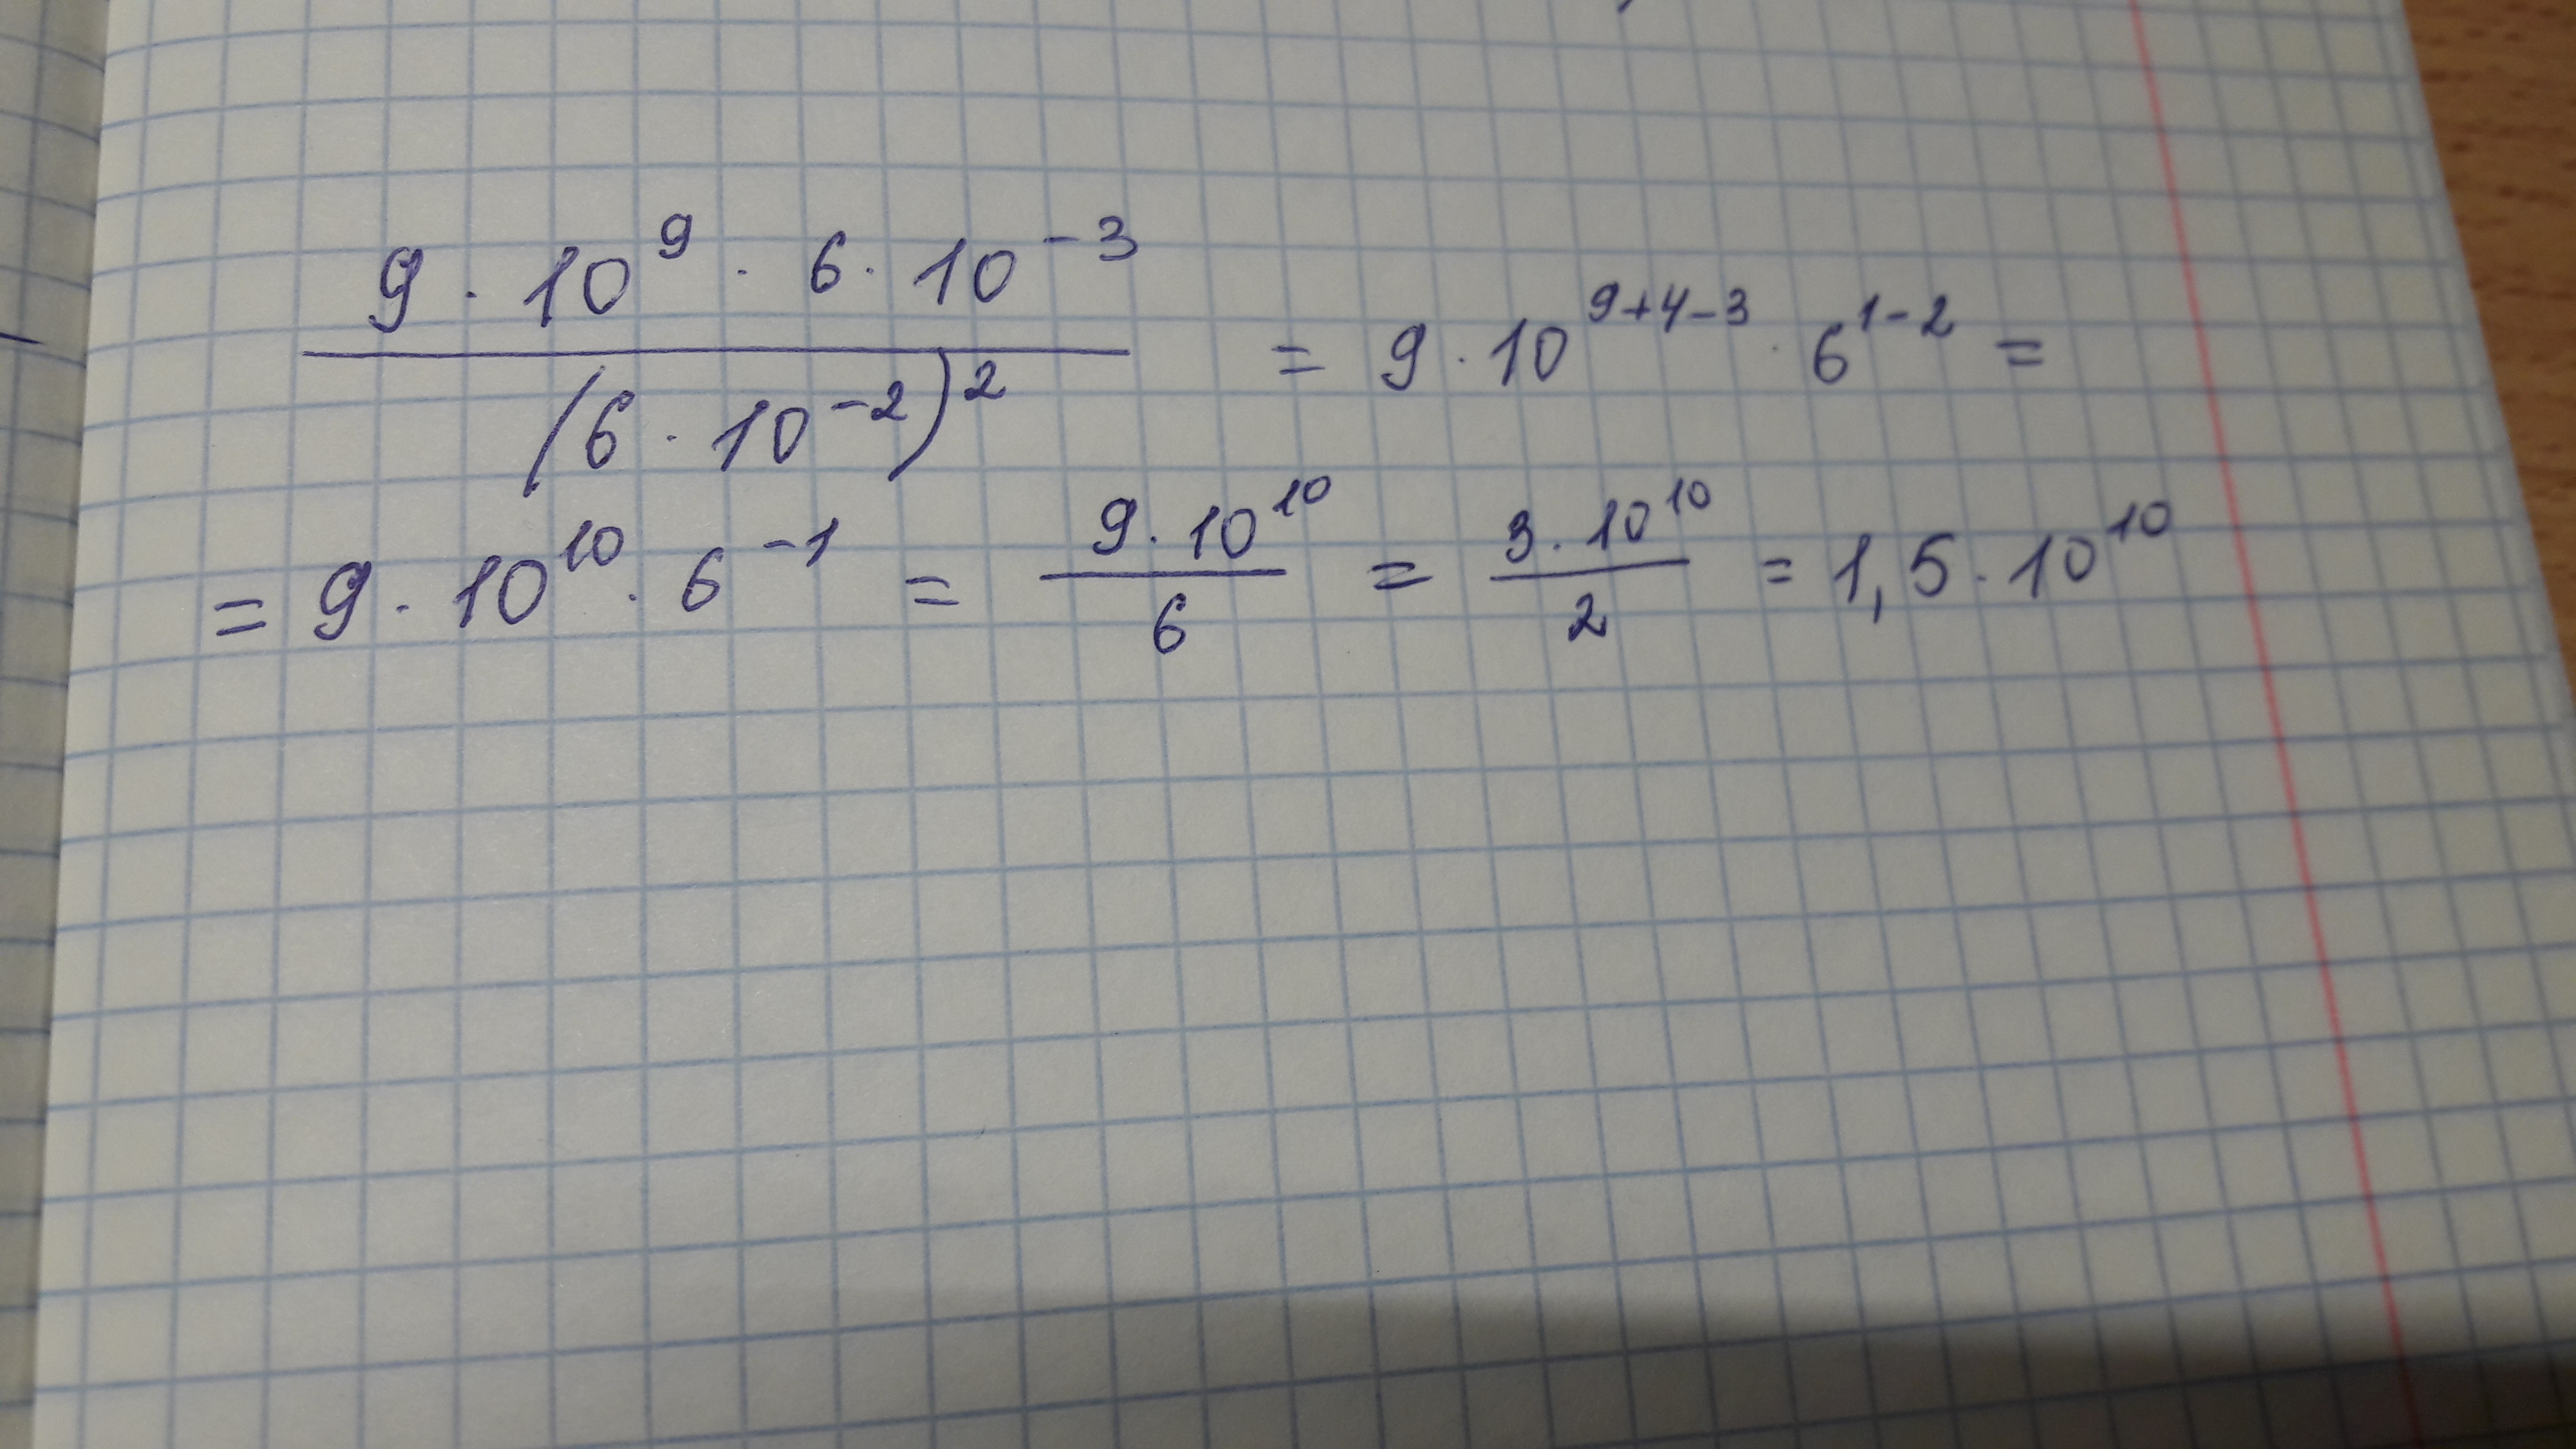 (9 · 10^9 · 6 · 10^-3) / (6 · 10^-2)^2 = 9 · 10^(9+4-3) · 6^(1-2) =
= 9 · 10^10 · 6^-1 = (9 · 10^10) / 6 = (3 · 10^10) / 2 = 1,5 · 10^10